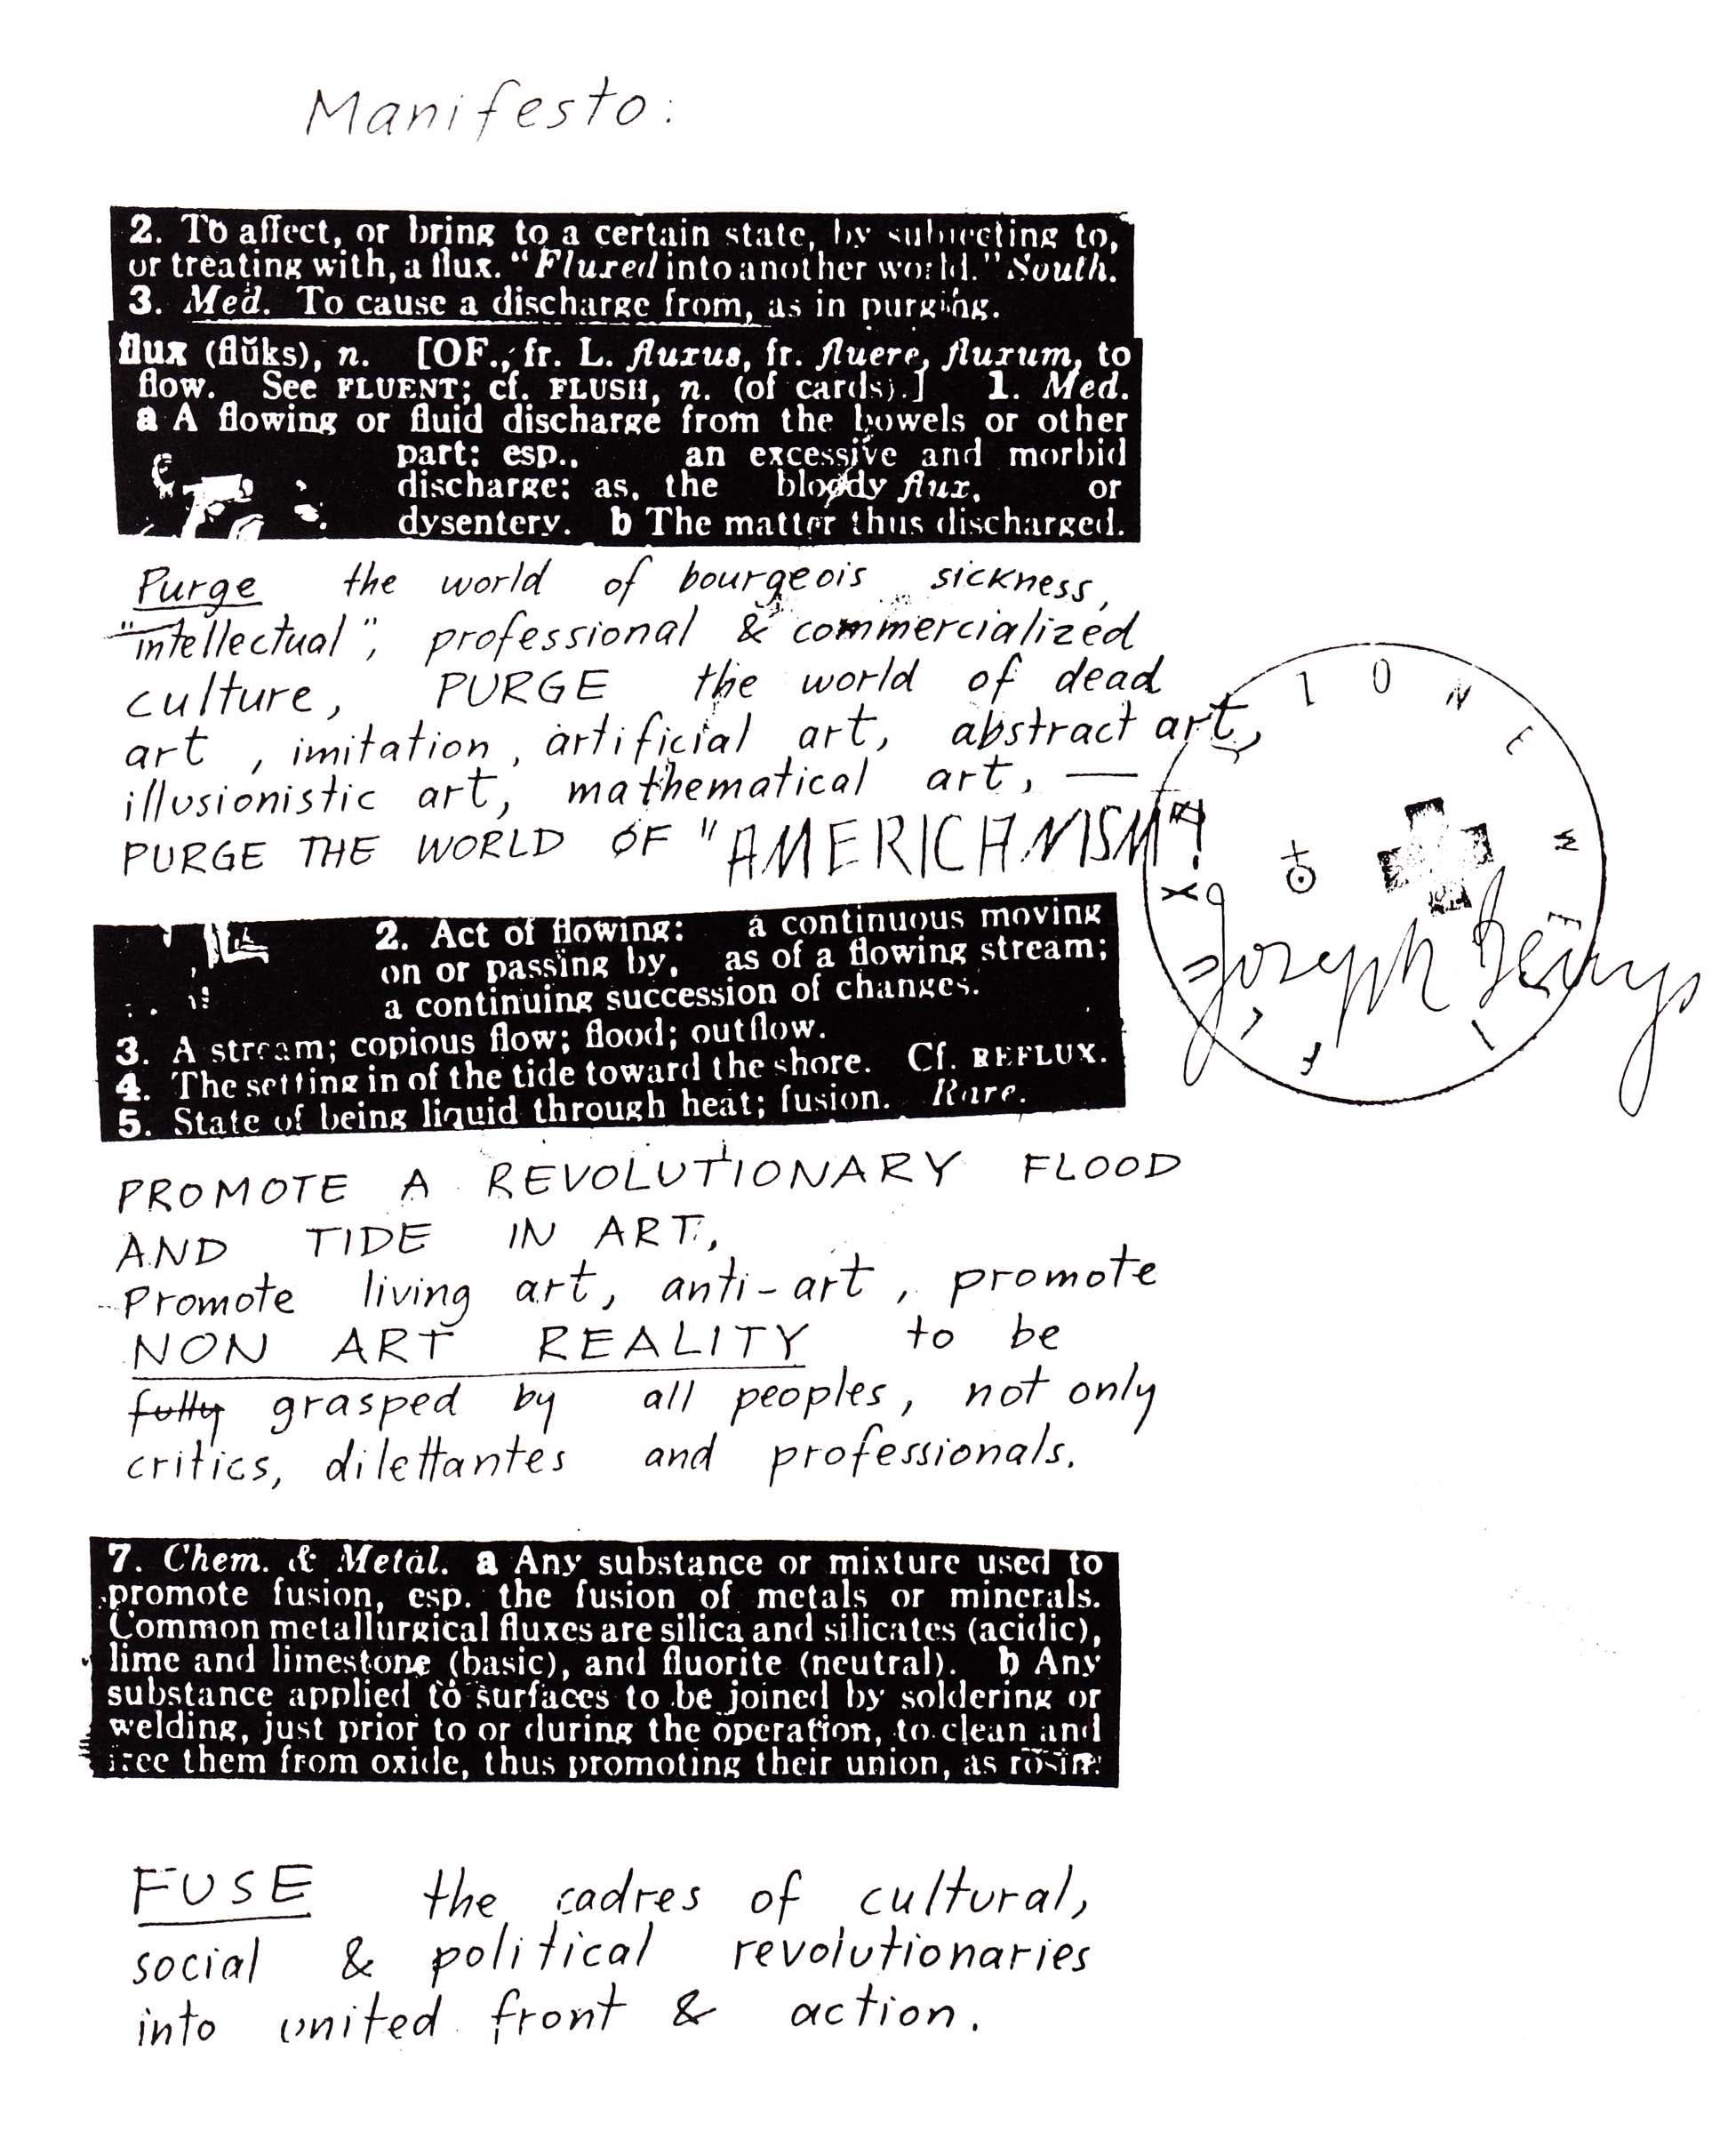 Manifesto:
2. To affect, or bring to a certain state, by subjecting to,
or treating with, a flux. "Fluxed into another world." South.
3. Med. To cause a discharge from, as in purging.
flux (flŭks), n. [OF., fr. L. fluxus, fr. fluere, fluxum, to
flow. See FLUENT; cf. FLUSH, n. (of cards).] 1. Med.
a A flowing or fluid discharge from the bowels or other
part: esp., an excessive and morbid
discharge: as, the bloody flux, or
dysentery. b The matter thus discharged.
Purge the world of bourgeois sickness,
"intellectual", professional & commercialized
culture, PURGE the world of dead
art, imitation, artificial art, abstract art,
illusionistic art, mathematical art, —
PURGE THE WORLD OF "AMERICANISM"!
FLUXUS ZONE WEST
Joseph Beuys
2. Act of flowing: a continuous moving
on or passing by, as of a flowing stream;
a continuing succession of changes.
3. A stream; copious flow; flood; outflow.
4. The setting in of the tide toward the shore. Cf. REFLUX.
5. State of being liquid through heat; fusion. Rare.
PROMOTE A REVOLUTIONARY FLOOD
AND TIDE IN ART,
Promote living art, anti-art, promote
NON ART REALITY to be
fully grasped by all peoples, not only
critics, dilettantes and professionals.
7. Chem. & Metal. a Any substance or mixture used to
promote fusion, esp. the fusion of metals or minerals.
Common metallurgical fluxes are silica and silicates (acidic),
lime and limestone (basic), and fluorite (neutral). b Any
substance applied to surfaces to be joined by soldering or
welding, just prior to or during the operation, to clean and
free them from oxide, thus promoting their union, as rosin.
FUSE the cadres of cultural,
social & political revolutionaries
into united front & action.